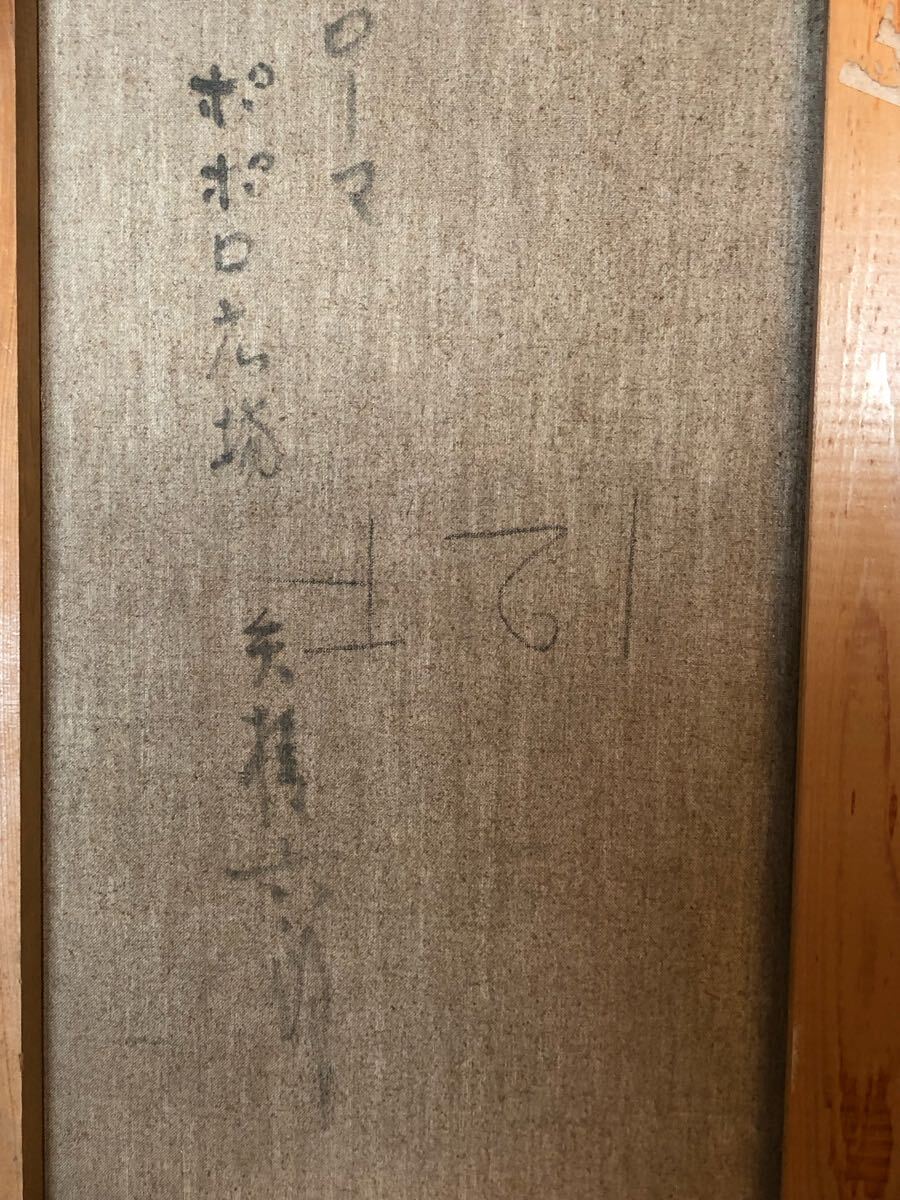 ローマ
ポポロ広場
12F
矢橋六郎